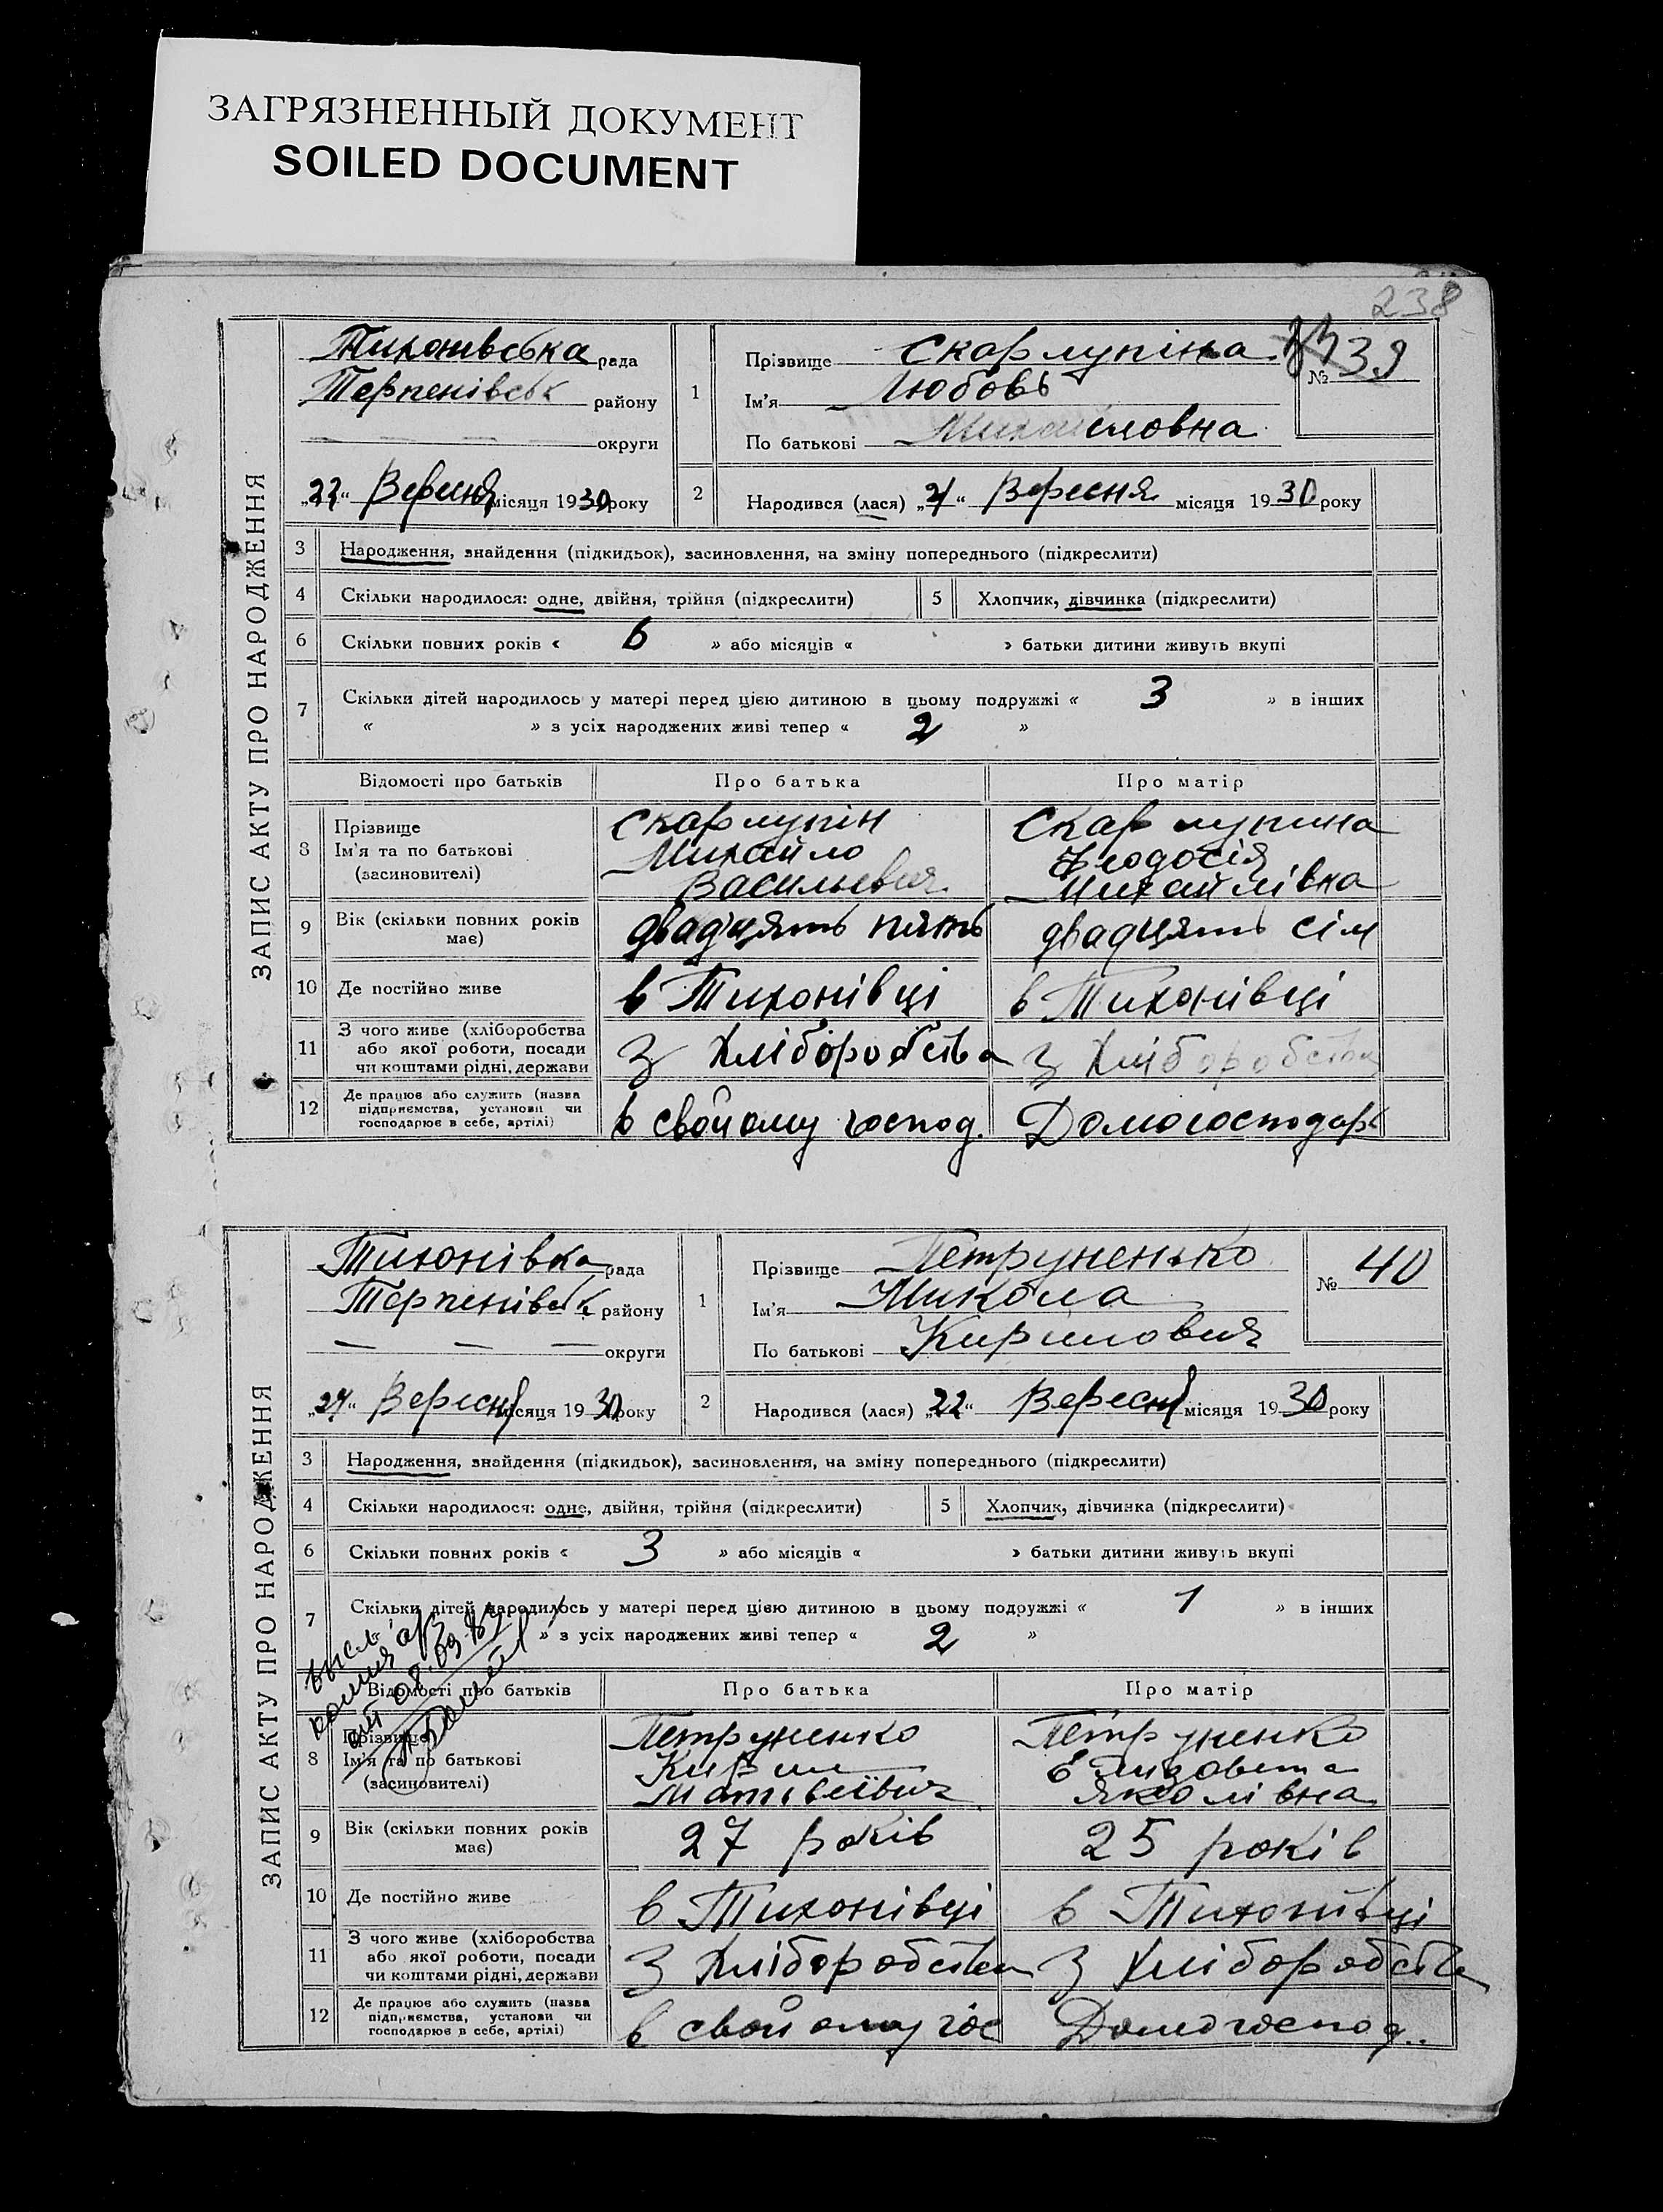 ЗАГРЯЗНЕННЫЙ ДОКУМЕНТ
SOILED DOCUMENT
238
ЗАПИС АКТУ ПРО НАРОДЖЕННЯ
Тихонівська рада
Терпенівськ району
— — — — округи
„22“ Вересня місяця 1930 року
1
Прізвище Скарлупіна
Ім'я Любовь
По батькові Михайловна
№ 39
2
Народився (лася) „21“ Вересня місяця 1930 року
3 Народження, знайдення (підкидьок), засиновлення, на зміну попереднього (підкреслити)
4 Скільки народилося: одне, двійня, трійня (підкреслити) 5 Хлопчик, дівчинка (підкреслити)
6 Скільки повних років « 6 » або місяців « » батьки дитини живуть вкупі
7 Скільки дітей народилось у матері перед цією дитиною в цьому подружжі « 3 » в інших
« » з усіх народжених живі тепер « 2 »
Відомості про батьків Про батька Про матір
8 Прізвище Ім'я та по батькові (засиновителі)
Скарлупін Михайло Васильевич
Скарлупина Феодосія Михайлівна
9 Вік (скільки повних років має) двадцять пять двадцять сім
10 Де постійно живе в Тихонівці в Тихонівці
11 З чого живе (хліборобства або якої роботи, посади чи коштами рідні, держави З Хліборобства З Хліборобства
12 Де працює або служить (назва підприємства, установи чи господарює в себе, артілі) в свойому господ. Домогосподарк
ЗАПИС АКТУ ПРО НАРОДЖЕННЯ
Тихонівка рада
Терпенівськ району
— — — округи
„27“ Вересня місяця 1930 року
1
Прізвище Петруненько
Ім'я Микола
По батькові Кирилович
№ 40
2
Народився (лася) „22“ Вересня місяця 1930 року
3 Народження, знайдення (підкидьок), засиновлення, на зміну попереднього (підкреслити)
4 Скільки народилося: одне, двійня, трійня (підкреслити) 5 Хлопчик, дівчинка (підкреслити)
6 Скільки повних років « 3 » або місяців « » батьки дитини живуть вкупі
7 Скільки дітей народилось у матері перед цією дитиною в цьому подружжі « 1 » в інших
» з усіх народжених живі тепер « 2 »
Відомості про батьків Про батька Про матір
8 Прізвище Ім'я та по батькові (засиновителі)
Петруненко Кирил Матвеївич
Петруненко Елизовета Яковлівна
9 Вік (скільки повних років має) 27 років 25 років
10 Де постійно живе в Тихонівці в Тихонівці
11 З чого живе (хліборобства або якої роботи, посади чи коштами рідні, держави З Хліборобства З Хліборобства
12 Де працює або служить (назва підприємства, установи чи господарює в себе, артілі) в свойому гос Домогоспод..